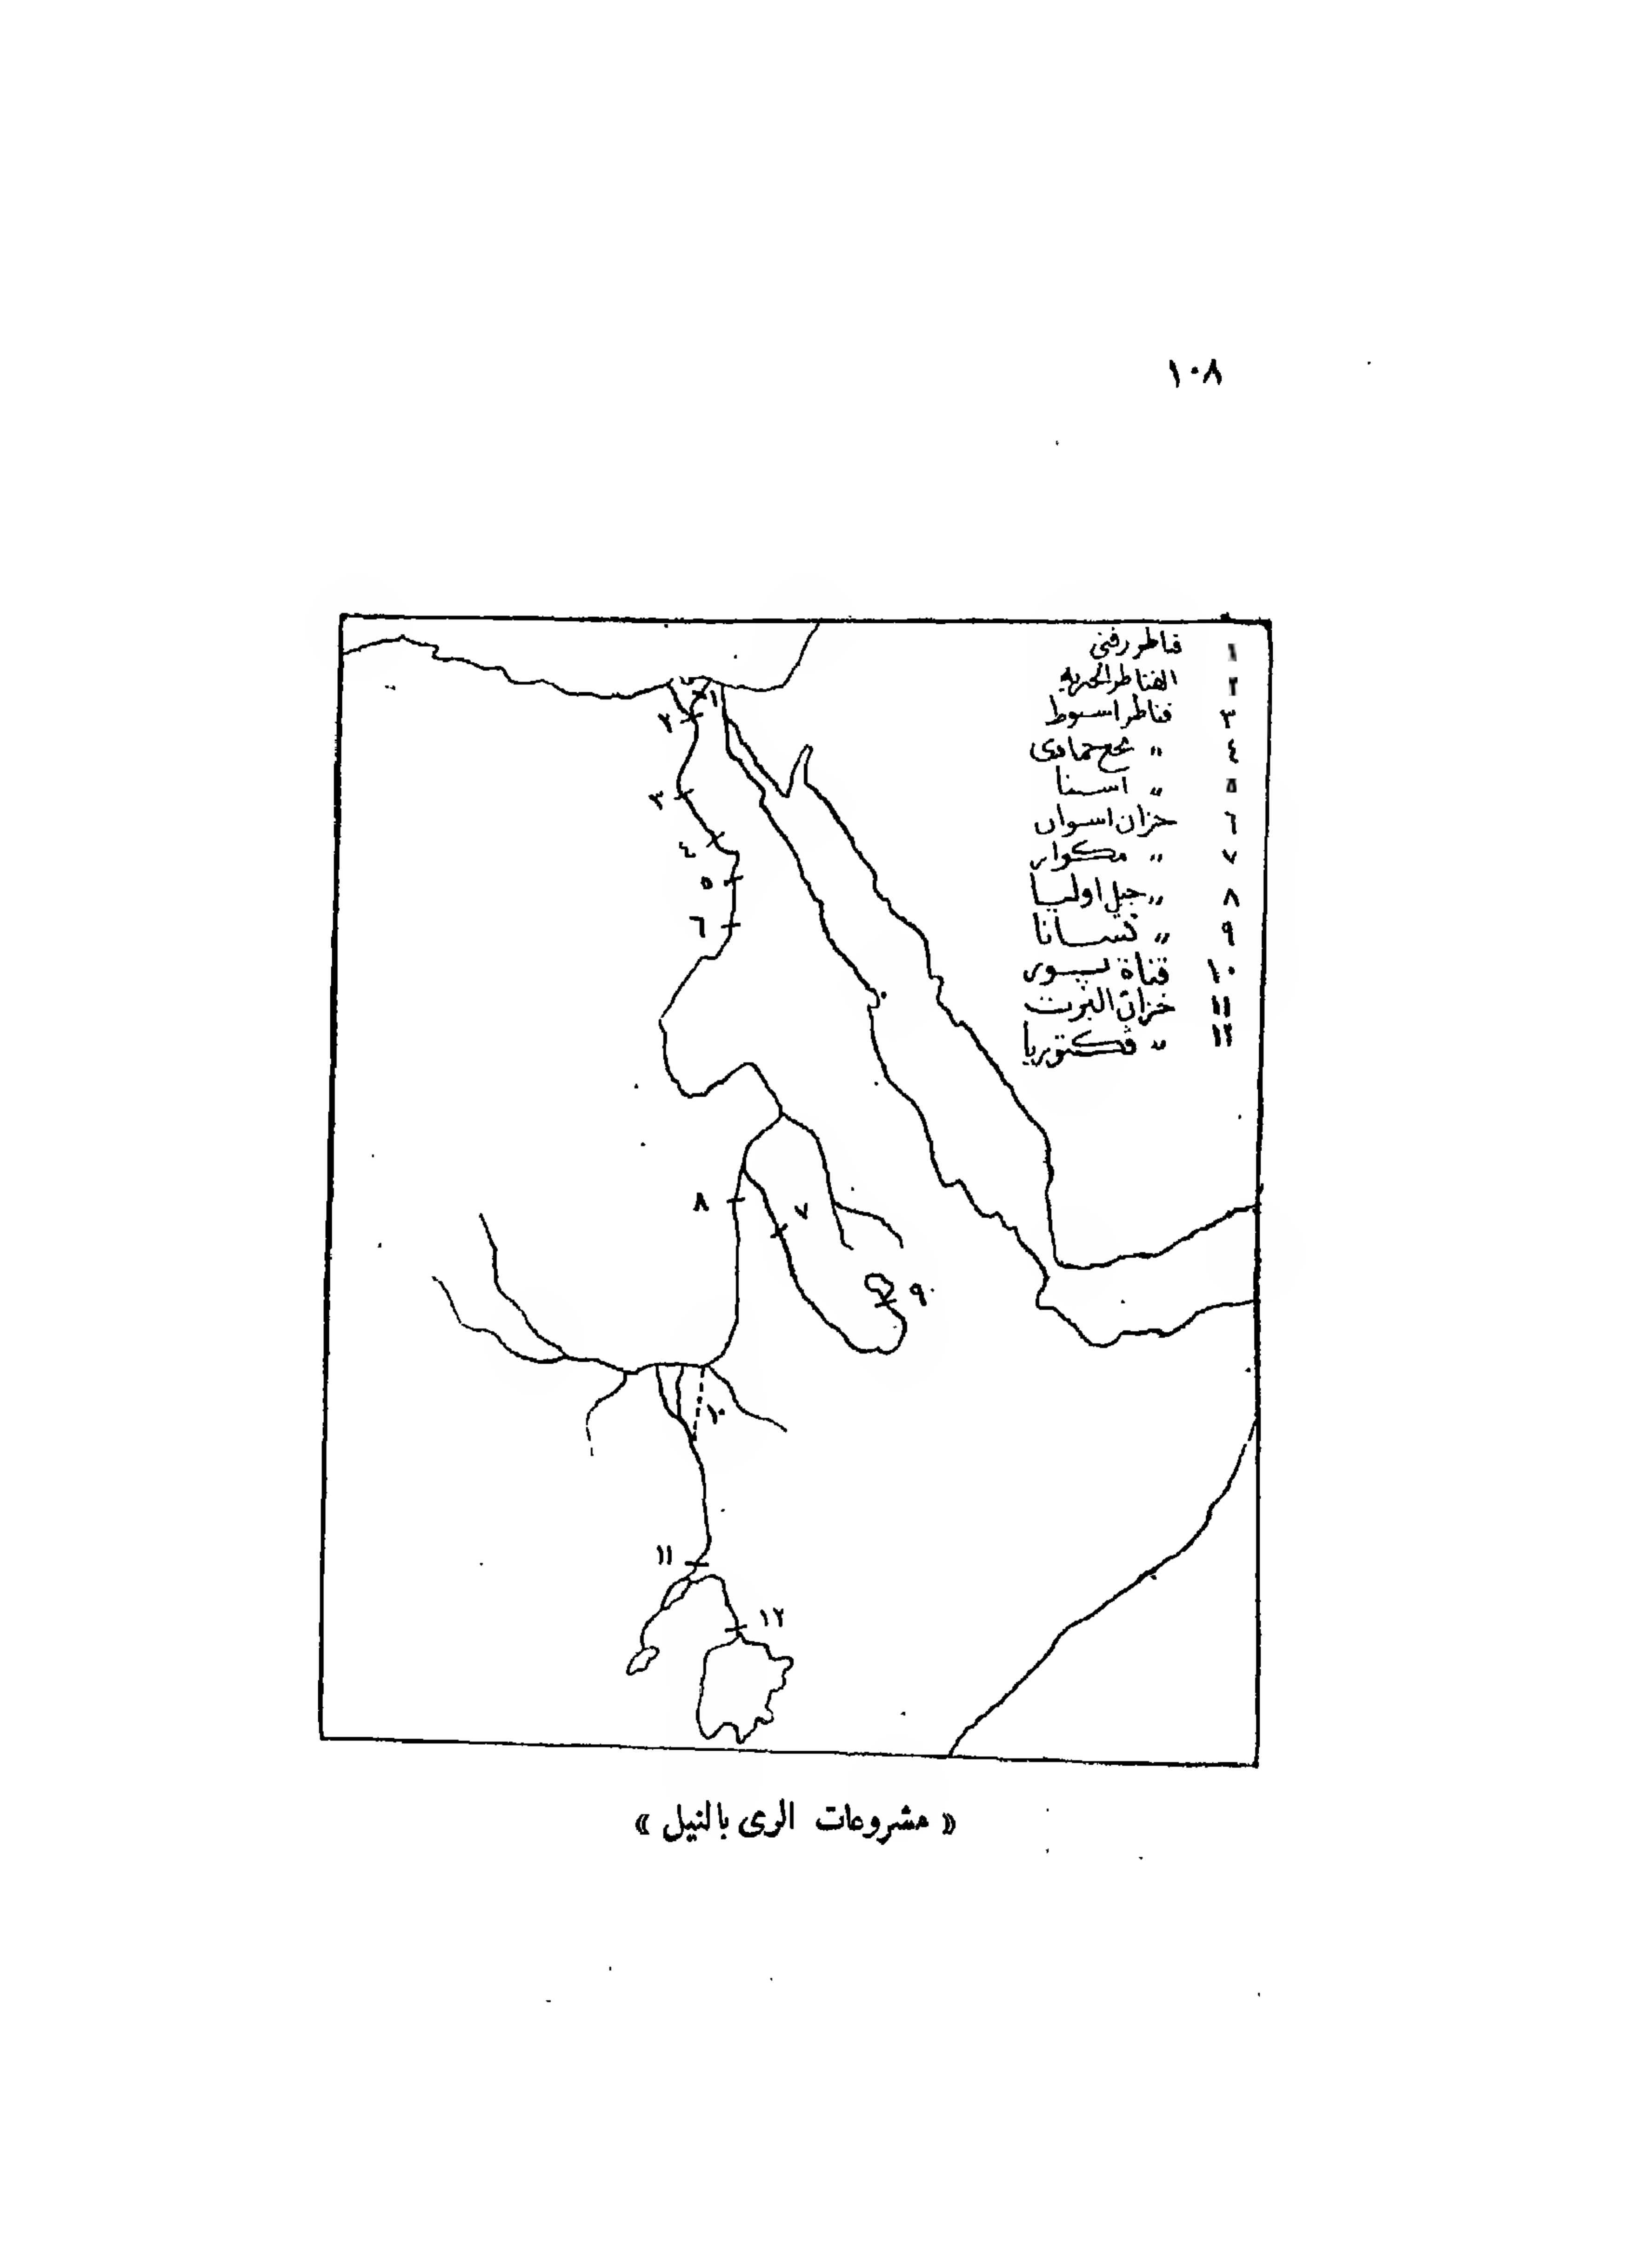 ١٠٨
١ قناطر زفتى
٢ القناطر الخيريه
٣ قناطر اسيوط
٤ " نجع حمادى
٥ " اسنا
٦ خزان اسوان
٧ " مكوار
٨ " جبل اوليا
٩ " تسانا
١٠ قناة
١١ خزان البرت
١٢ " فكتوريا
١
٢
٣
٤
٥
٦
٨
٧
٩
١٠
١١
١٢
« مشروعات الرى بالنيل »